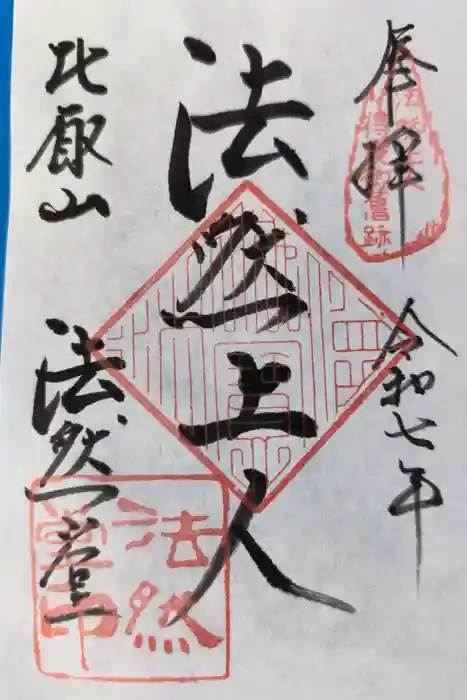 奉拝
法然上人
得度御旧跡
令和七年
法然上人
比叡山
法然堂
法然
堂印